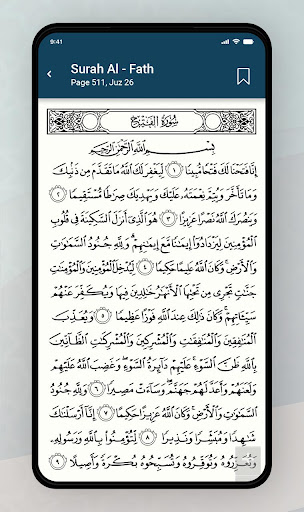 9:41
Surah Al - Fath
Page 511, Juz 26
سُورَةُ الفَتْحِ
بِسْمِ اللَّهِ الرَّحْمَٰنِ الرَّحِيمِ
إِنَّا فَتَحْنَا لَكَ فَتْحًا مُّبِينًا ١ لِّيَغْفِرَ لَكَ اللَّهُ مَا تَقَدَّمَ مِن ذَنبِكَ
وَمَا تَأَخَّرَ وَيُتِمَّ نِعْمَتَهُ عَلَيْكَ وَيَهْدِيَكَ صِرَاطًا مُّسْتَقِيمًا ٢
وَيَنصُرَكَ اللَّهُ نَصْرًا عَزِيزًا ٣ هُوَ الَّذِي أَنزَلَ السَّكِينَةَ فِي قُلُوبِ
الْمُؤْمِنِينَ لِيَزْدَادُوا إِيمَٰنًا مَّعَ إِيمَٰنِهِمْ وَلِلَّهِ جُنُودُ السَّمَٰوَٰتِ
وَالْأَرْضِ وَكَانَ اللَّهُ عَلِيمًا حَكِيمًا ٤ لِّيُدْخِلَ الْمُؤْمِنِينَ وَالْمُؤْمِنَٰتِ
جَنَّٰتٍ تَجْرِي مِن تَحْتِهَا الْأَنْهَٰرُ خَٰلِدِينَ فِيهَا وَيُكَفِّرَ عَنْهُمْ
سَيِّـَٔاتِهِمْ وَكَانَ ذَٰلِكَ عِندَ اللَّهِ فَوْزًا عَظِيمًا ٥ وَيُعَذِّبَ
الْمُنَٰفِقِينَ وَالْمُنَٰفِقَٰتِ وَالْمُشْرِكِينَ وَالْمُشْرِكَٰتِ الظَّآنِّينَ
بِاللَّهِ ظَنَّ السَّوْءِ عَلَيْهِمْ دَآئِرَةُ السَّوْءِ وَغَضِبَ اللَّهُ عَلَيْهِمْ
وَلَعَنَهُمْ وَأَعَدَّ لَهُمْ جَهَنَّمَ وَسَآءَتْ مَصِيرًا ٦ وَلِلَّهِ جُنُودُ
السَّمَٰوَٰتِ وَالْأَرْضِ وَكَانَ اللَّهُ عَزِيزًا حَكِيمًا ٧ إِنَّآ أَرْسَلْنَٰكَ
شَٰهِدًا وَمُبَشِّرًا وَنَذِيرًا ٨ لِّتُؤْمِنُوا بِاللَّهِ وَرَسُولِهِ
وَتُعَزِّرُوهُ وَتُوَقِّرُوهُ وَتُسَبِّحُوهُ بُكْرَةً وَأَصِيلًا ٩